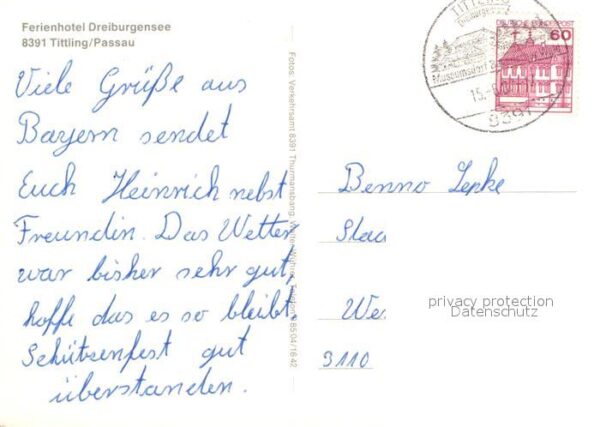 Ferienhotel Dreiburgensee
8391 Tittling/Passau
Viele Grüße aus
Bayern sendet
Euch Heinrich nebst
Freundin. Das Wetter
war bisher sehr gut,
hoffe das es so bleibt.
Schützenfest gut
überstanden.
Fotos: Verkehrsamt 8391 Thurmansbang,
DEUTSCHE BUNDESPOST
60
Museumsdorf
8391
Benno Lepke
We
3110
privacy protection
Datenschutz